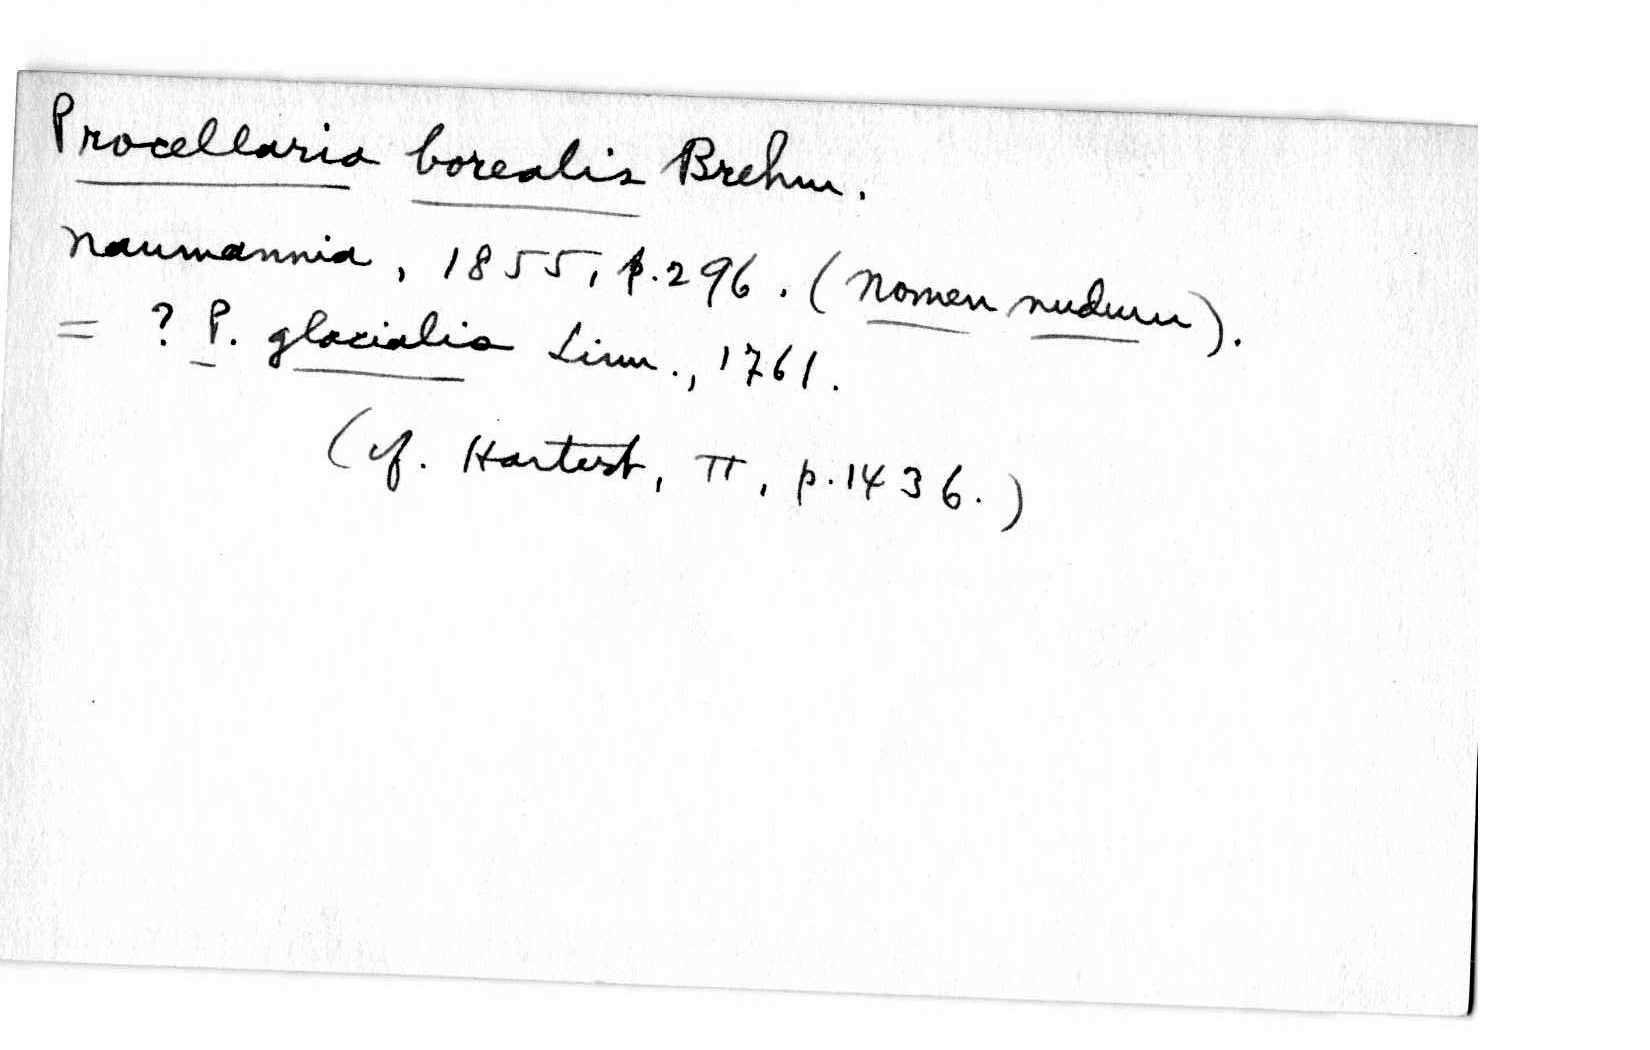 Procellaria borealis Brehm.
Naumannia, 1855, p.296. (nomen nudum).
= ? P. glacialis Linn., 1761.
(cf. Hartert, II, p.1436.)